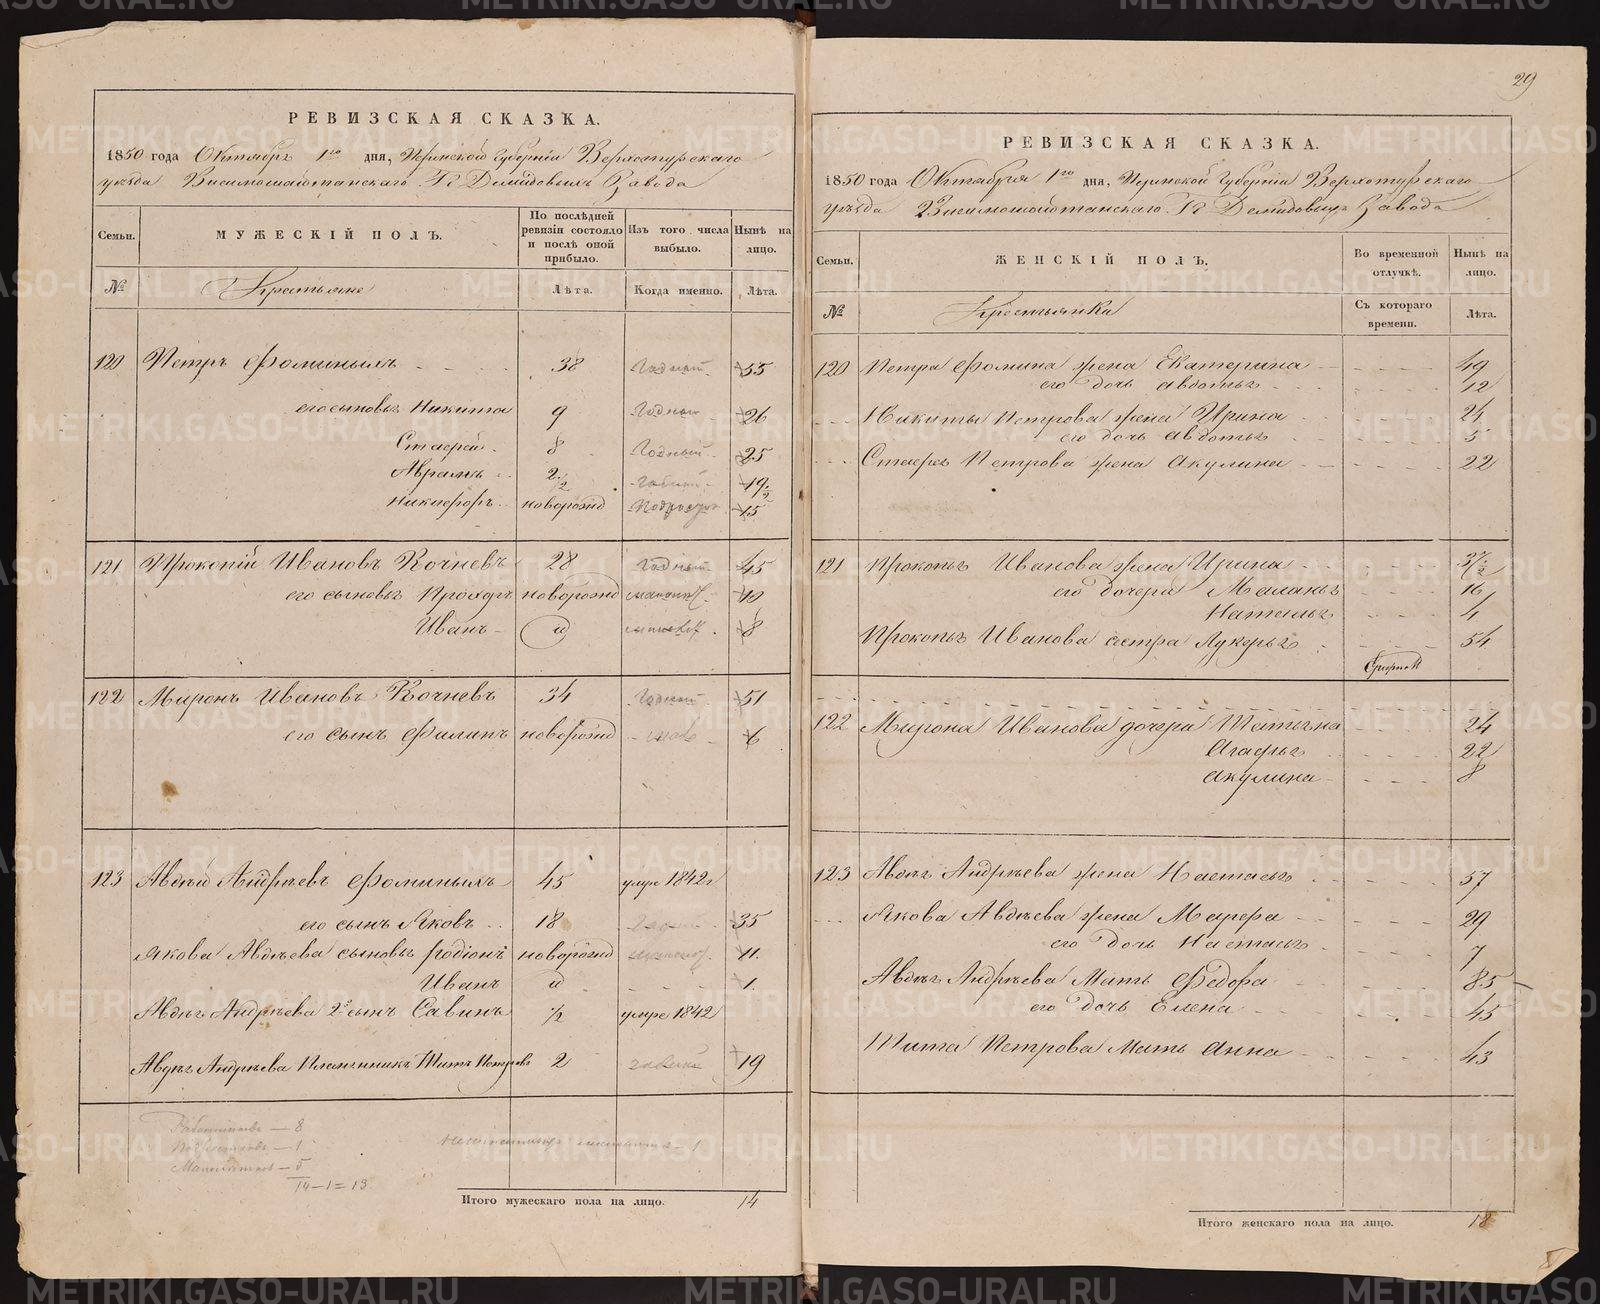 РЕВИЗСКАЯ СКАЗКА.
1850 года Октября 1го дня, Пермской Губернiи Верхотурскаго
уѣзда Висимошайтанскаго Гг Демидовыхъ Завода
Семьи.
МУЖЕСКІЙ ПОЛЪ.
По послѣдней ревизіи состояло и послѣ оной прибыло.
Изъ того числа выбыло.
Нынѣ на лицо.
№
Крестьяне
Лѣта.
Когда именно.
Лѣта.
120 Петръ Фоминыхъ 38 Годный 55
его сыновья Никита 9 Годный 26
8 Годный 25
Авраамъ 2 1/2 19 1/2
Никифоръ новорожд 15
121 Прокопій Ивановъ Кочневъ 28 Годный 45
его сыновья Прохоръ новорожд 10
Иванъ и 8
122 Миронъ Ивановъ Кочневъ 34 Годный 51
его сынъ Филипъ новорожд 6
123 Авдѣй Андрѣевъ Фоминыхъ 45 умре 1842г
его сынъ Яковъ 18 35
Якова Авдѣева сыновья Родіонъ новорожд 11.
Иванъ и 1.
Авдѣя Андрѣева 2й сынъ Савинъ 1/2 умре 1842
Авдѣя Андрѣева Племянникъ Титъ Петровъ 2 19
Работниковъ — 8
Подростковъ — 1
Малолѣтковъ — 5
14–1=13
Итого мужескаго пола на лицо. 14
29
РЕВИЗСКАЯ СКАЗКА.
1850 года Октября 1го дня, Пермской Губернiи Верхотурскаго
уѣзда Висимошайтанскаго Гг Демидовыхъ Завода
Семьи.
ЖЕНСКІЙ ПОЛЪ.
Во временной отлучкѣ.
Нынѣ на лицо.
№
Крестьянки
Съ котораго времени.
Лѣта.
120 Петра Фомина жена Екатерина 49
его дочь Авдотья 12
Никиты Петрова жена Ирина 24
его дочь Авдотья 5
Петрова жена Акулина 22
121 Прокопья Иванова жена Ирина 37 1/2
его дочери Маланья 16
Наталья 4
Прокопья Иванова сестра Лукерья 54
122 Мирона Иванова дочери Татьяна 24
Агафья 22
Акулина 8
123 Авдѣя Андрѣева жена Настасья 57
Якова Авдѣева жена Марфа 29
его дочь Настасья 7
Авдѣя Андрѣева Мать Федора 85
его дочь Елена 45
Тита Петрова Мать Анна 43
Итого женскаго пола на лицо. 18
METRIKI.GASO-URAL.RU